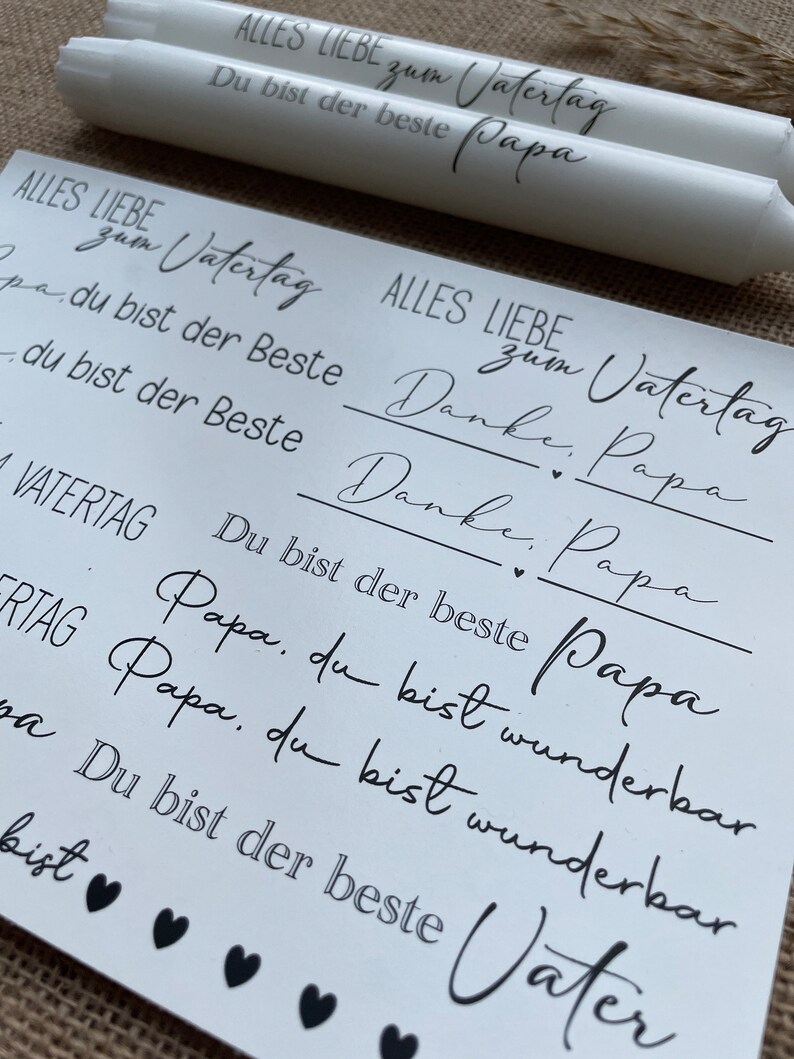 ALLES LIEBE
zum Vatertag
Du bist der beste Papa
ALLES LIEBE
zum Vatertag
du bist der Beste
du bist der Beste
VATERTAG
bist
ALLES LIEBE
zum Vatertag
Danke, Papa
Danke, Papa
Du bist der beste Papa
Papa, du bist wunderbar
Papa, du bist wunderbar
Du bist der beste Vater